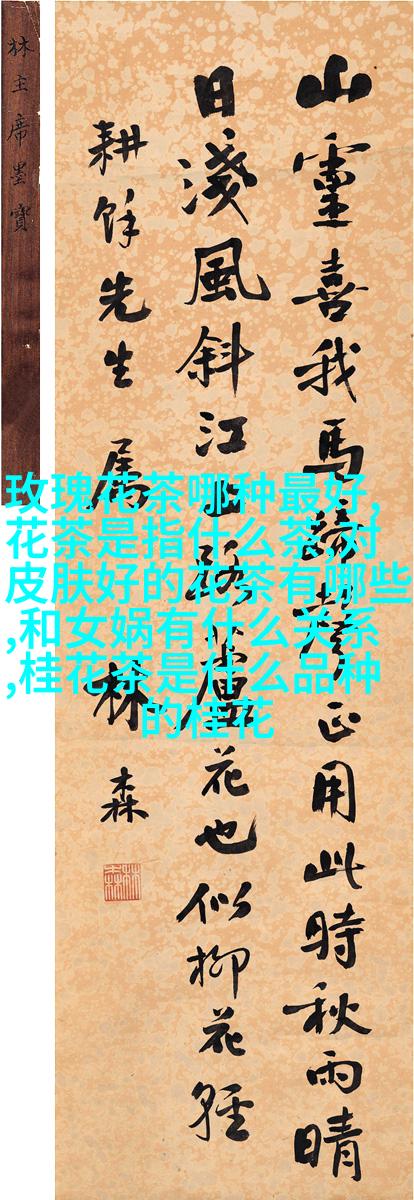 山靈喜我馬蹄聲正用此時秋雨晴
日淺風斜江上路蘆花也似柳花輕
耕餘先生 屬 林森
林主席墨寶
玫瑰花茶哪种最好,
花茶是指什么茶,对
皮肤好的花茶有哪些
,和女娲有什么关系
,桂花茶是什么品种
的桂花